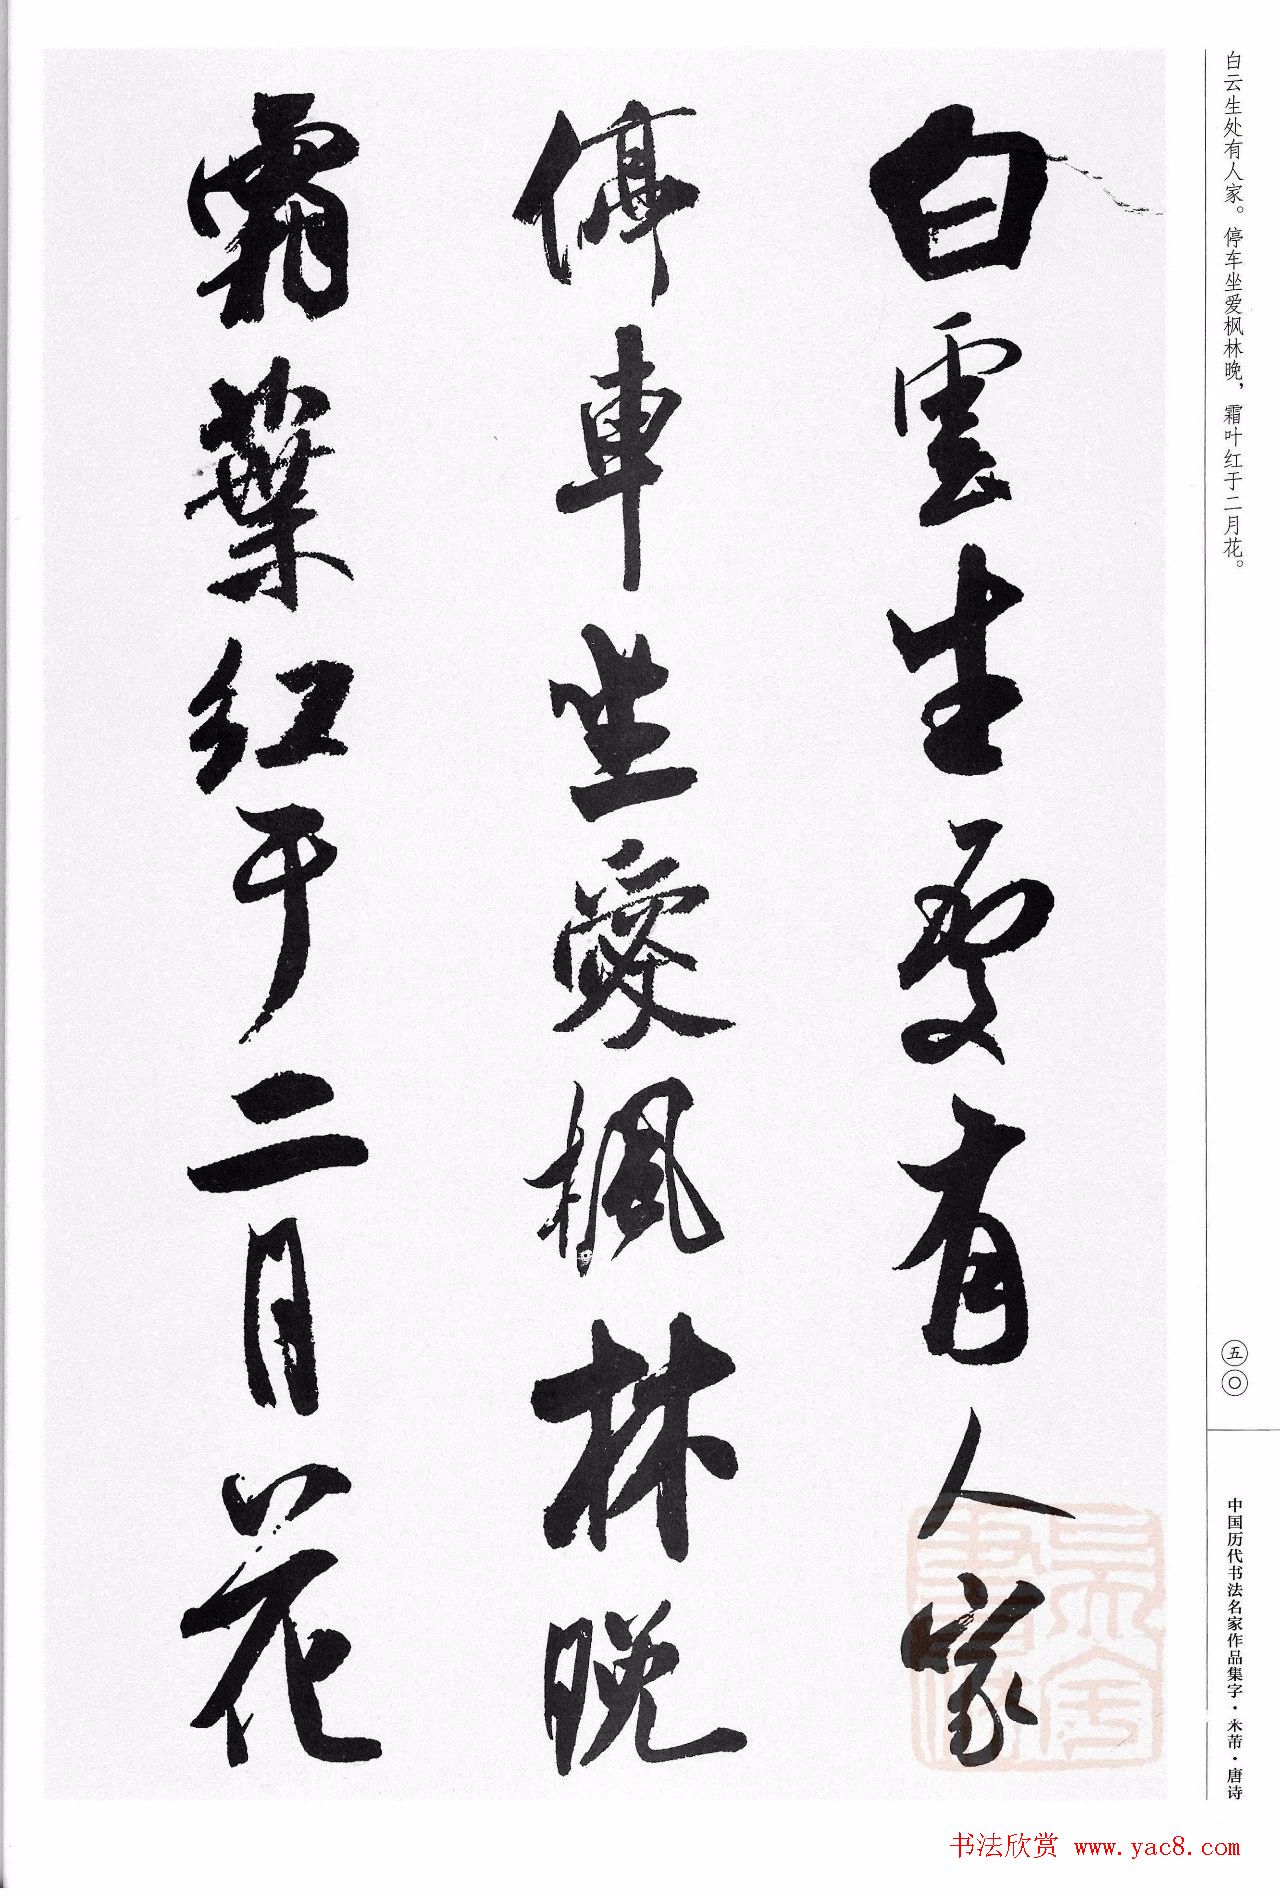 白云生处有人家。停车坐爱枫林晚，霜叶红于二月花。
白雲生處有人家
停車坐愛楓林晚
霜葉红于二月花
五〇
中国历代书法名家作品集字·米芾·唐诗
书法欣赏 www.yac8.com